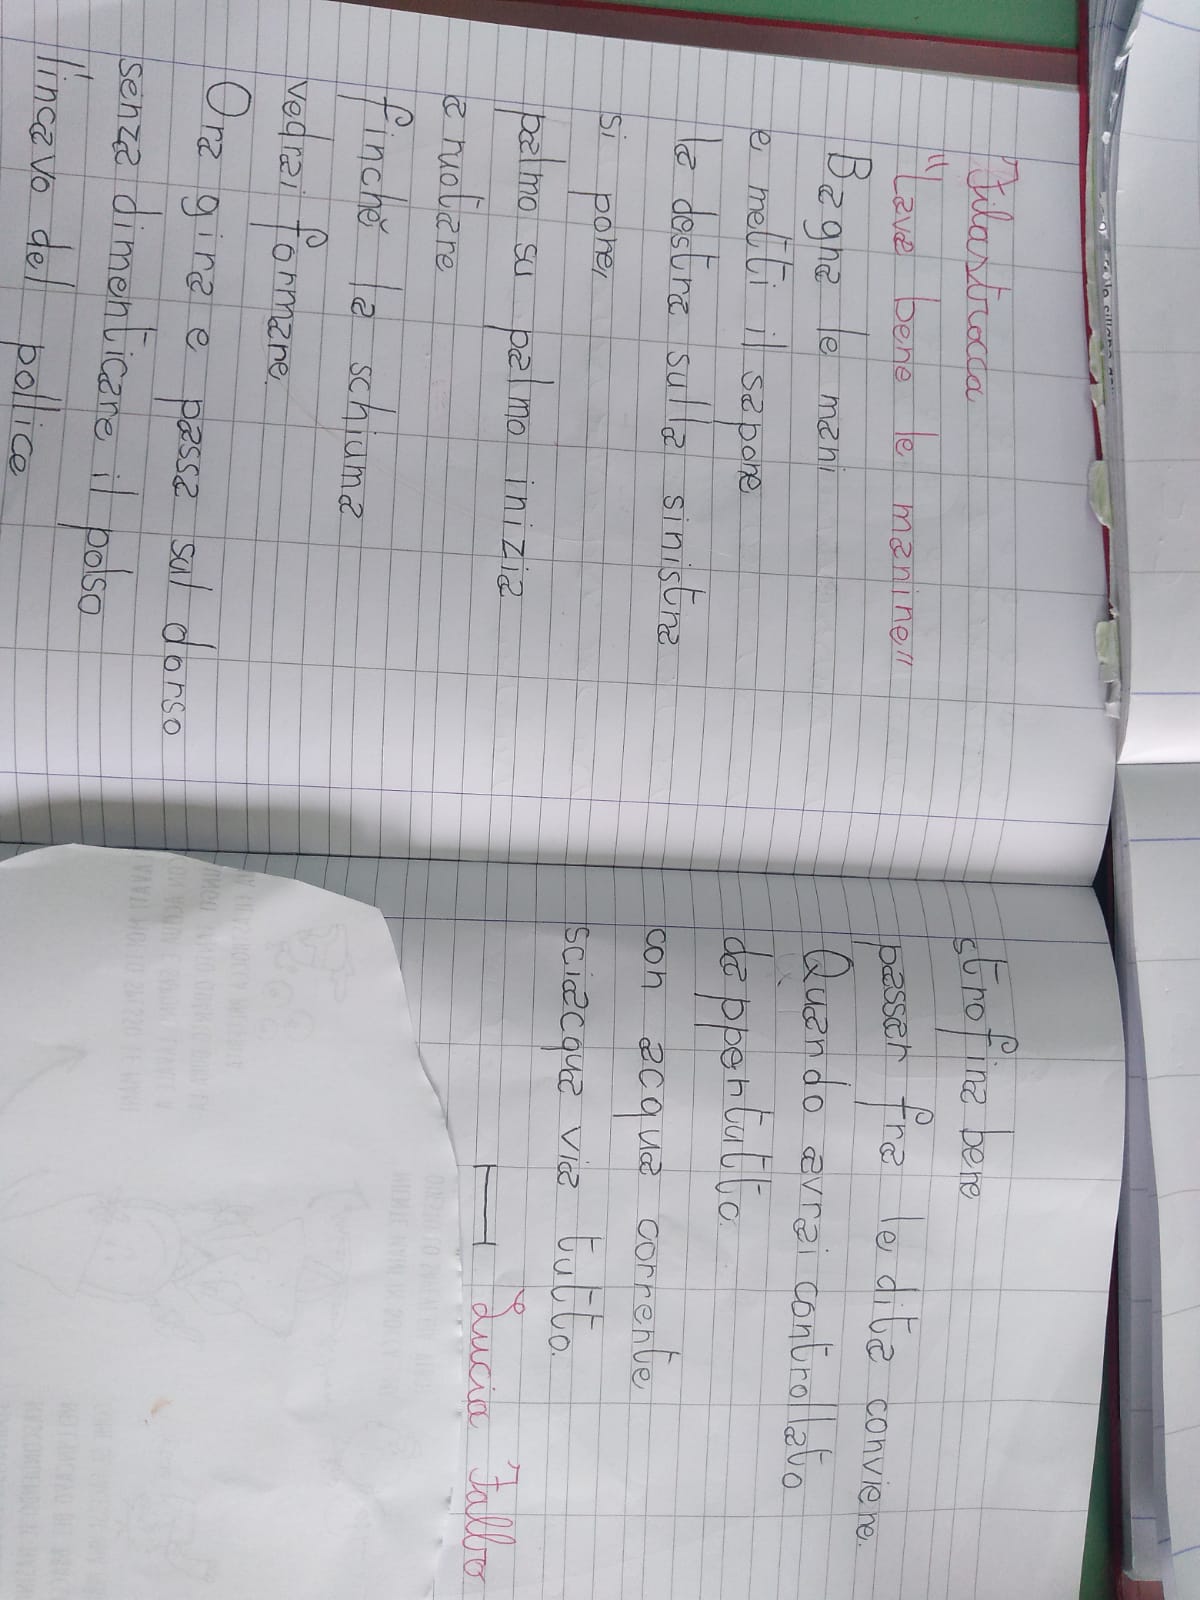 Filastrocca
"Lava bene le manine"
Bagna le mani
e metti il sapone
la destra sulla sinistra
si pone,
palmo su palmo inizia
a ruotare
finchè la schiuma
vedrai formare.
Ora gira e passa sul dorso
senza dimenticare il polso
l'incavo del pollice
strofina bene
passar fra le dita conviene.
Quando avrai controllato
dappertutto.
con acqua corrente
sciacqua via tutto.
Lucia Fallro